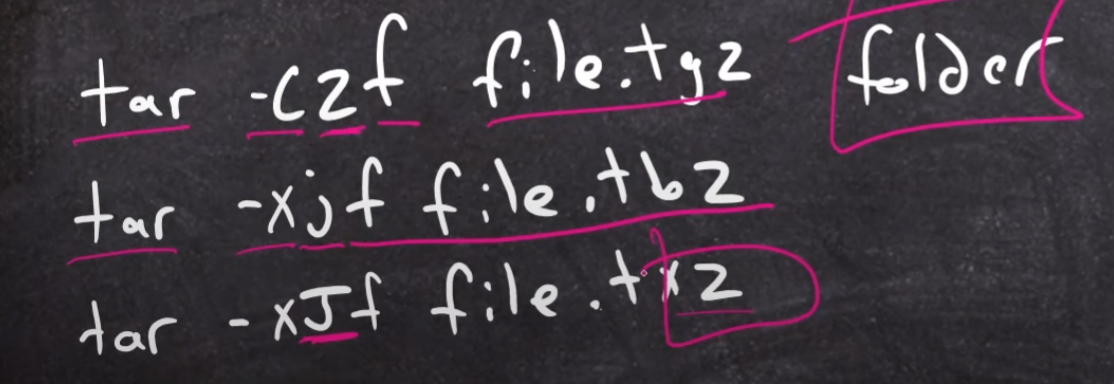 tar -czf file.tgz folder
tar -xjf file.tbz
tar -xJf file.txz